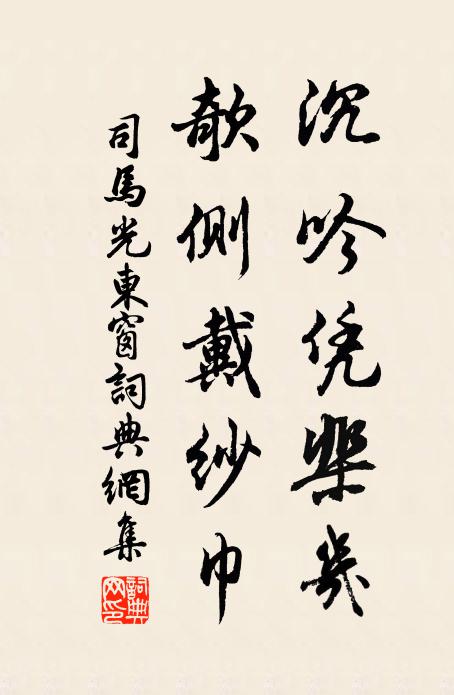 沉吟凭棐幾
欹側戴紗巾
司馬光東窗詞典網集
詞典網印